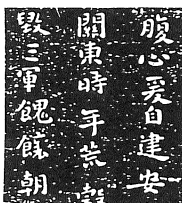 腹心爰自建安
關東時年荒穀
毀三軍餽饟朝